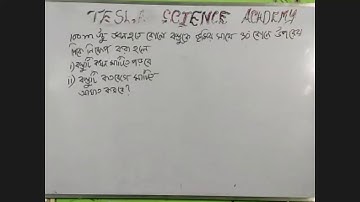 TESLA SCIENCE ACADEMY
100m উঁচু দালান হতে কোনো বস্তুকে ভূমির সাথে 30° কোণে উপরের
দিকে নিক্ষেপ করা হলে
i) বস্তুটি কখন মাটিতে পড়বে
ii) বস্তুটি কত বেগে মাটিতে
আঘাত করবে?